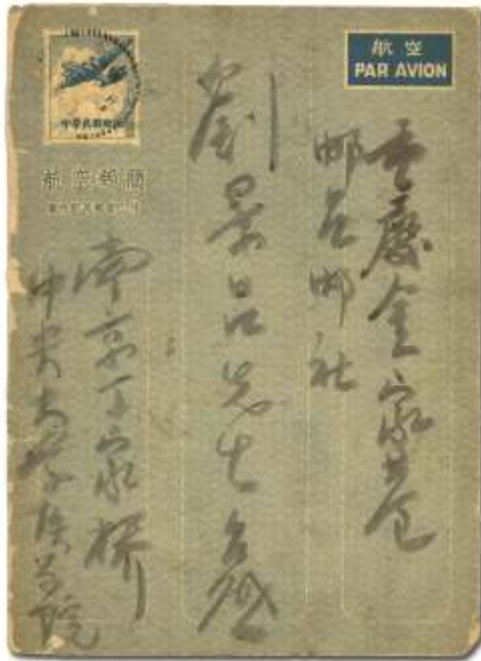 航空
PAR AVION
中華民國郵政
航空郵簡
重慶金家巷
郵局郵社
劉景呂先生台啟
南京丁家橋
中央大學醫學院